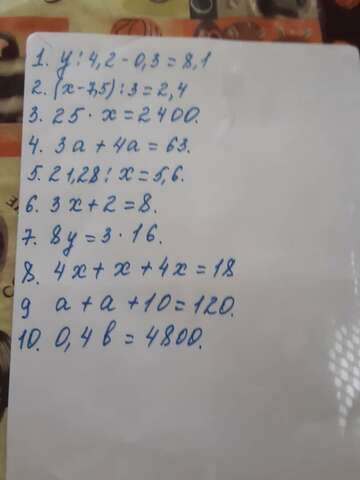 1. y : 4,2 - 0,3 = 8,1
2. (x - 7,5) : 3 = 2,4
3. 25 · x = 2400.
4. 3a + 4a = 63.
5. 21,28 : x = 5,6.
6. 3x + 2 = 8.
7. 8y = 3 · 16.
8. 4x + x + 4x = 18
9 a + a + 10 = 120.
10. 0,4 в = 4800.